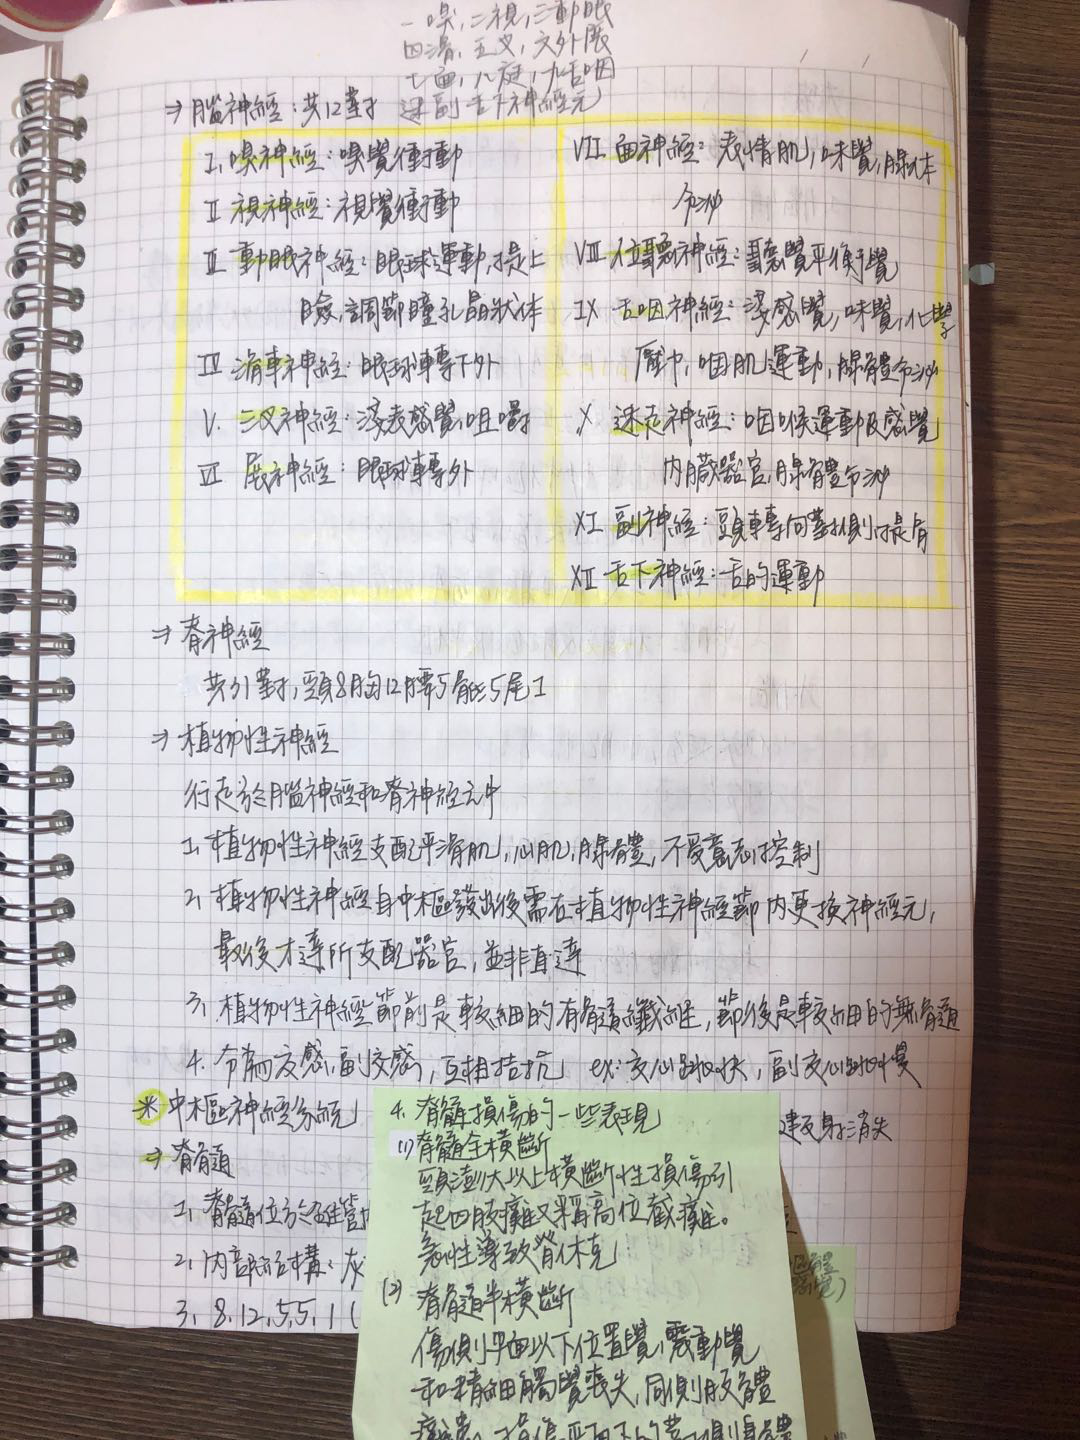 一嗅,二視,三動眼
四滑,五叉,六外展
七面,八庭,九舌咽
迷副舌下神經元
⇒ 腦神經:共12對
I. 嗅神經:嗅覺衝動
II 視神經:視覺衝動
III 動眼神經:眼球運動,提上
瞼,調節瞳孔晶狀体
IV 滑車神經:眼球轉下外
V. 三叉神經:淺表感覺,咀嚼
VI 展神經:眼球轉外
VII 面神經:表情肌,味覺,腺体
分泌
VIII 位聽神經:聽覺平衡覺
IX 舌咽神經:淺感覺,味覺,化學
壓力,咽肌運動,腺體分泌
X 迷走神經:咽喉運動及感覺
內臟器官,腺體分泌
XI 副神經:頭轉向對側,提肩
XII 舌下神經:舌的運動
⇒ 脊神經
共31對,頸8胸12腰5骶5尾1
⇒ 植物性神經
行走於腦神經和脊神經元中
1. 植物性神經支配平滑肌,心肌,腺體,不受意志控制
2. 植物性神經自中樞發出後需在植物性神經節內更換神經元,
最後才達所支配器官,並非直達
3. 植物性神經節前是較細的有髓纖維,節後是較細的無髓
4. 分為交感,副交感,互相拮抗 ex:交心跳快,副交心跳慢
※ 中樞神經系統
⇒ 脊髓
1. 脊髓位於椎管
2. 內部結構:灰
3. 8.12.5.5.1 (
建反射消失
4. 脊髓損傷的一些表現
(1) 脊髓全橫斷
頸澎大以上橫斷性損傷引
起四肢癱又稱高位截癱。
急性導致脊休克
(2) 脊髓半橫斷
傷側平面以下位置覺,震動覺
和精細觸覺喪失,同側肢體